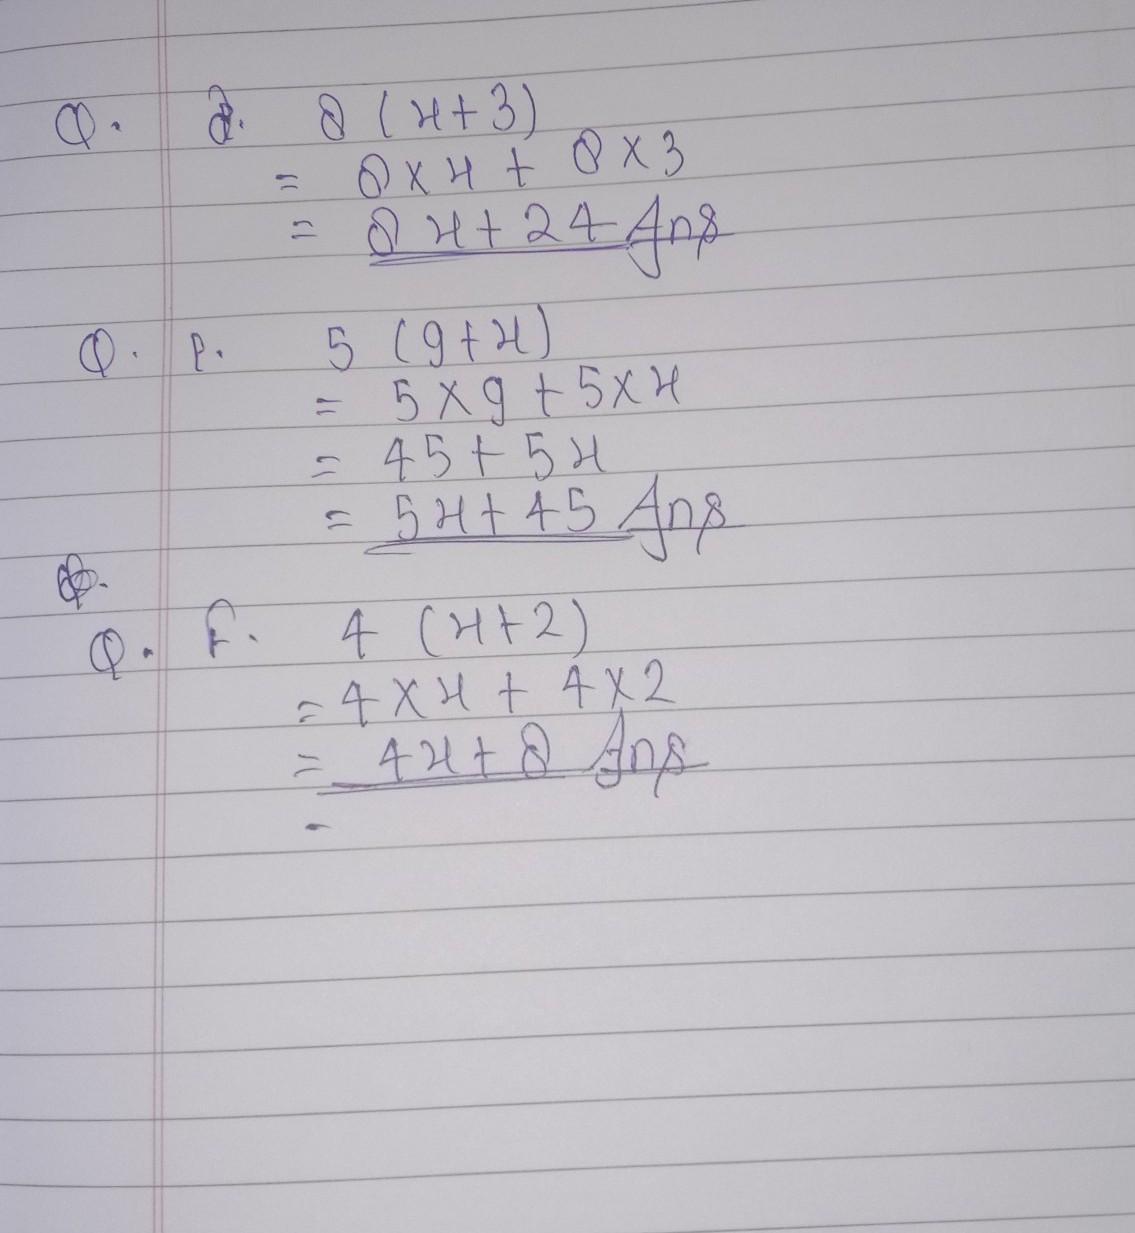 Q. d. 8 (x+3)
= 8×x + 8×3
= 8x+24 Ans
Q. P. 5 (9+x)
= 5×9+5×x
= 45+5x
= 5x+45 Ans
Q. F. 4 (x+2)
=4×x + 4×2
= 4x+8 Ans
-